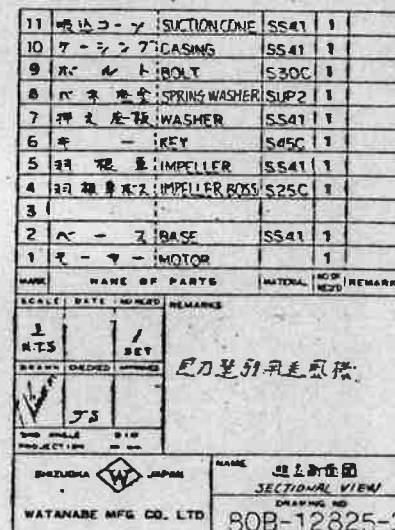 11 吸込コーン SUCTION CONE SS41 1
10 ケーシング CASING SS41 1
9 ボルト BOLT S30C 1
8 バネ座金 SPRING WASHER SUP2 1
7 押え座板 WASHER SS41 1
6 キー KEY S45C 1
5 羽根車 IMPELLER SS41 1
4 羽根車ボス IMPELLER BOSS S25C 1
3
2 ベース BASE SS41 1
1 モーター MOTOR 1
MARK NAME OF PARTS MATERIAL NO OF REQ'D REMARK
SCALE DATE NO REQ'D REMARKS
1
N.T.S 1 SET
DRAWN CHECKED
JS
3RD ANGLE
PROJECTION
SHIZUOKA W JAPAN
WATANABE MFG CO., LTD
NAME 組立断面図
SECTIONAL VIEW
DRAWING NO
BOB-12825-